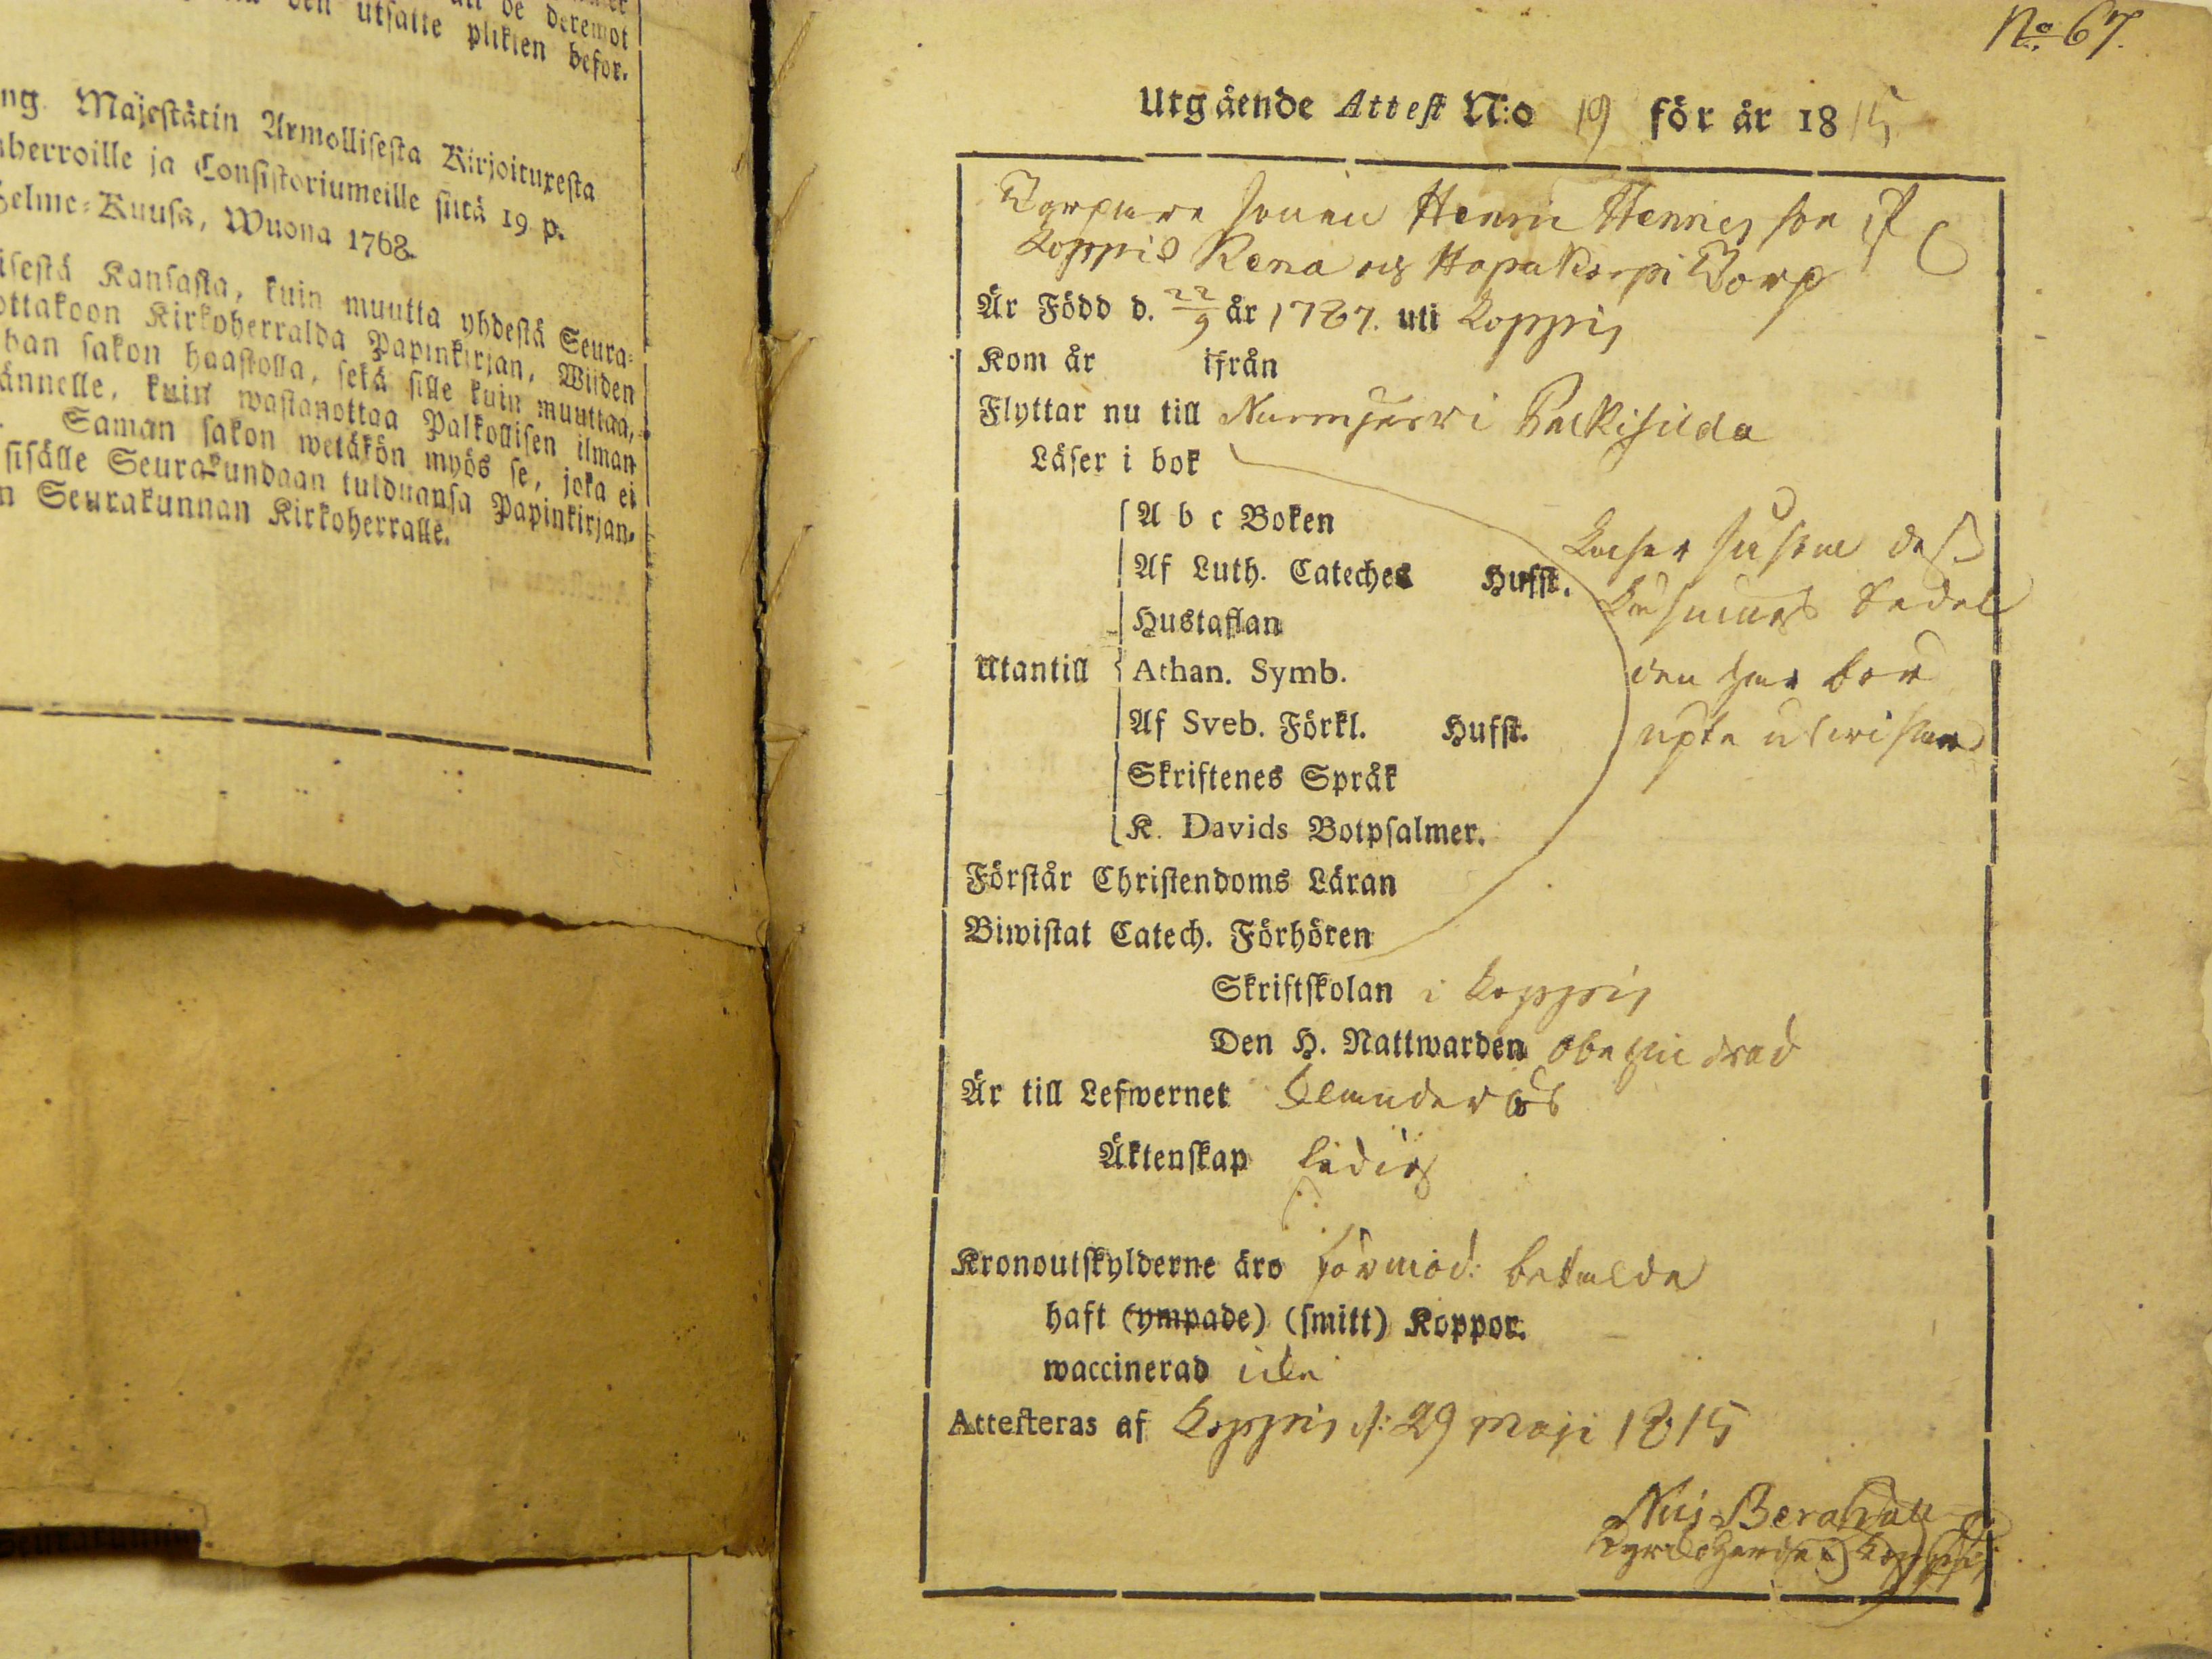 de deremot
den utsatte plikten befor.
ng. Majestätin Armollisesta Kirjoituxesta
herroille ja Consistoriumeille siitä 19 p.
Helme-Kuusa, Wuona 1768.
isestä Kansasta, kuin muutta yhdestä Seura-
ottakoon Kirkoherralda Papinkirjan, Wiiden
han sakon haastolla, sekä sille kuin muuttaa,
ännelle, kuin wastanottaa Palkollisen ilman
Saman sakon wetäkön myös se, joka ei
sisälle Seurakundaan tulduansa Papinkirjan-
n Seurakunnan Kirkoherralle.
No 67.
Utgående Attest N:o 19 för år 1815
Torpare sonen Henric Henricsson if
Loppis Kena och Hapakorpi Torp
Är Född d. 22/9 år 1787. uti Loppis
Kom år ifrån
Flyttar nu till Nurmijerwi Palkisilda
Läser i bok
A b c Boken
Läser såsom dess
Af Luth. Cateches Hufst.
Läsnings Sedel
Hustaflan
Utantill Athan. Symb.
den han bör
Af Sveb. Förkl. Hufst.
upte utwisar
Skriftenes Språk
K. Davids Botpsalmer.
Förstår Christendoms Läran
Biwistat Catech. Förhören
Skriftskolan i Loppis
Den H. Nattwarden obehindrad
Är till Lefwernet Klanderlös
Äktenskap Ledig
Kronoutskylderne äro förmod: betalda
haft (ympade) (smitt) Koppor.
waccinerad icke
Attesteras af Loppis d: 29 Maji 1815
Nils Bera
Kyrckoherde i Loppis